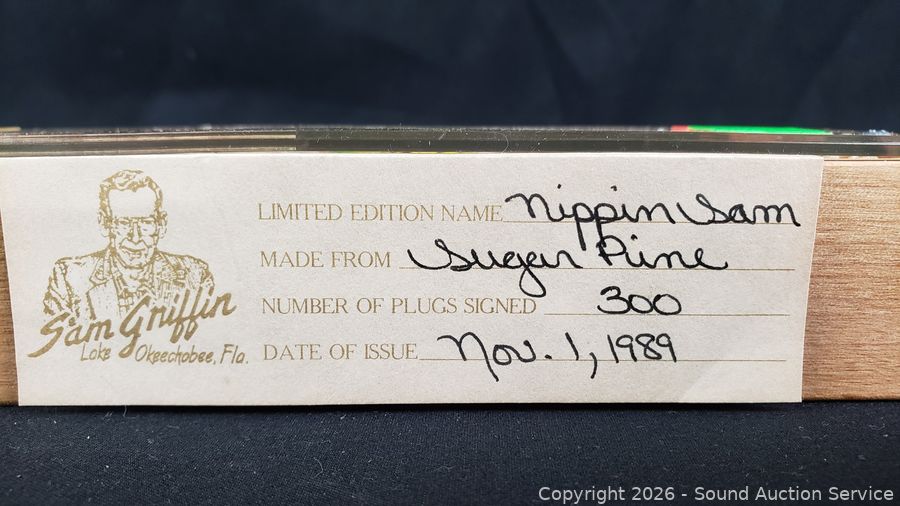 LIMITED EDITION NAME Nippin Sam
MADE FROM Sugar Pine
NUMBER OF PLUGS SIGNED 300
DATE OF ISSUE Nov. 1, 1989
Sam Griffin
Lake Okeechobee, Fla.
Copyright 2026 - Sound Auction Service